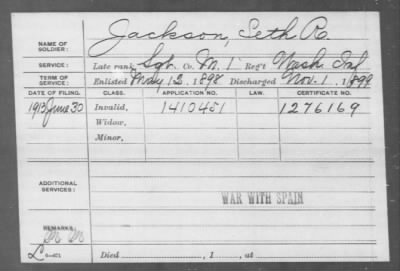 NAME OF SOLDIER: Jackson, Seth R.
SERVICE: Late rank, Sgt. Co. M. 1 Reg't Wash Inf
TERM OF SERVICE: Enlisted May 12, 1898 Discharged Nov. 1, 1899
DATE OF FILING. CLASS. APPLICATION NO. LAW. CERTIFICATE NO.
1913 June 30 Invalid, 1410451 1276169
Widow,
Minor,
ADDITIONAL SERVICES:
WAR WITH SPAIN
REMARKS:
L 0-471
Died , 1 , at